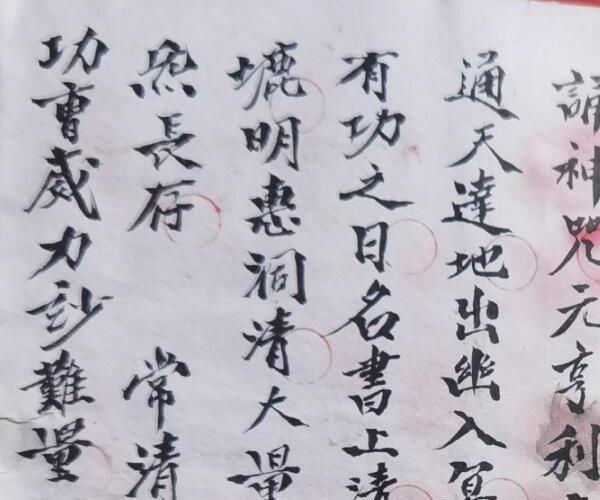 誦神咒元亨利
通天達地出幽入冥
有功之日名書上清
聰明惠洞清大量
炁長存 常清
功曹威力妙難量